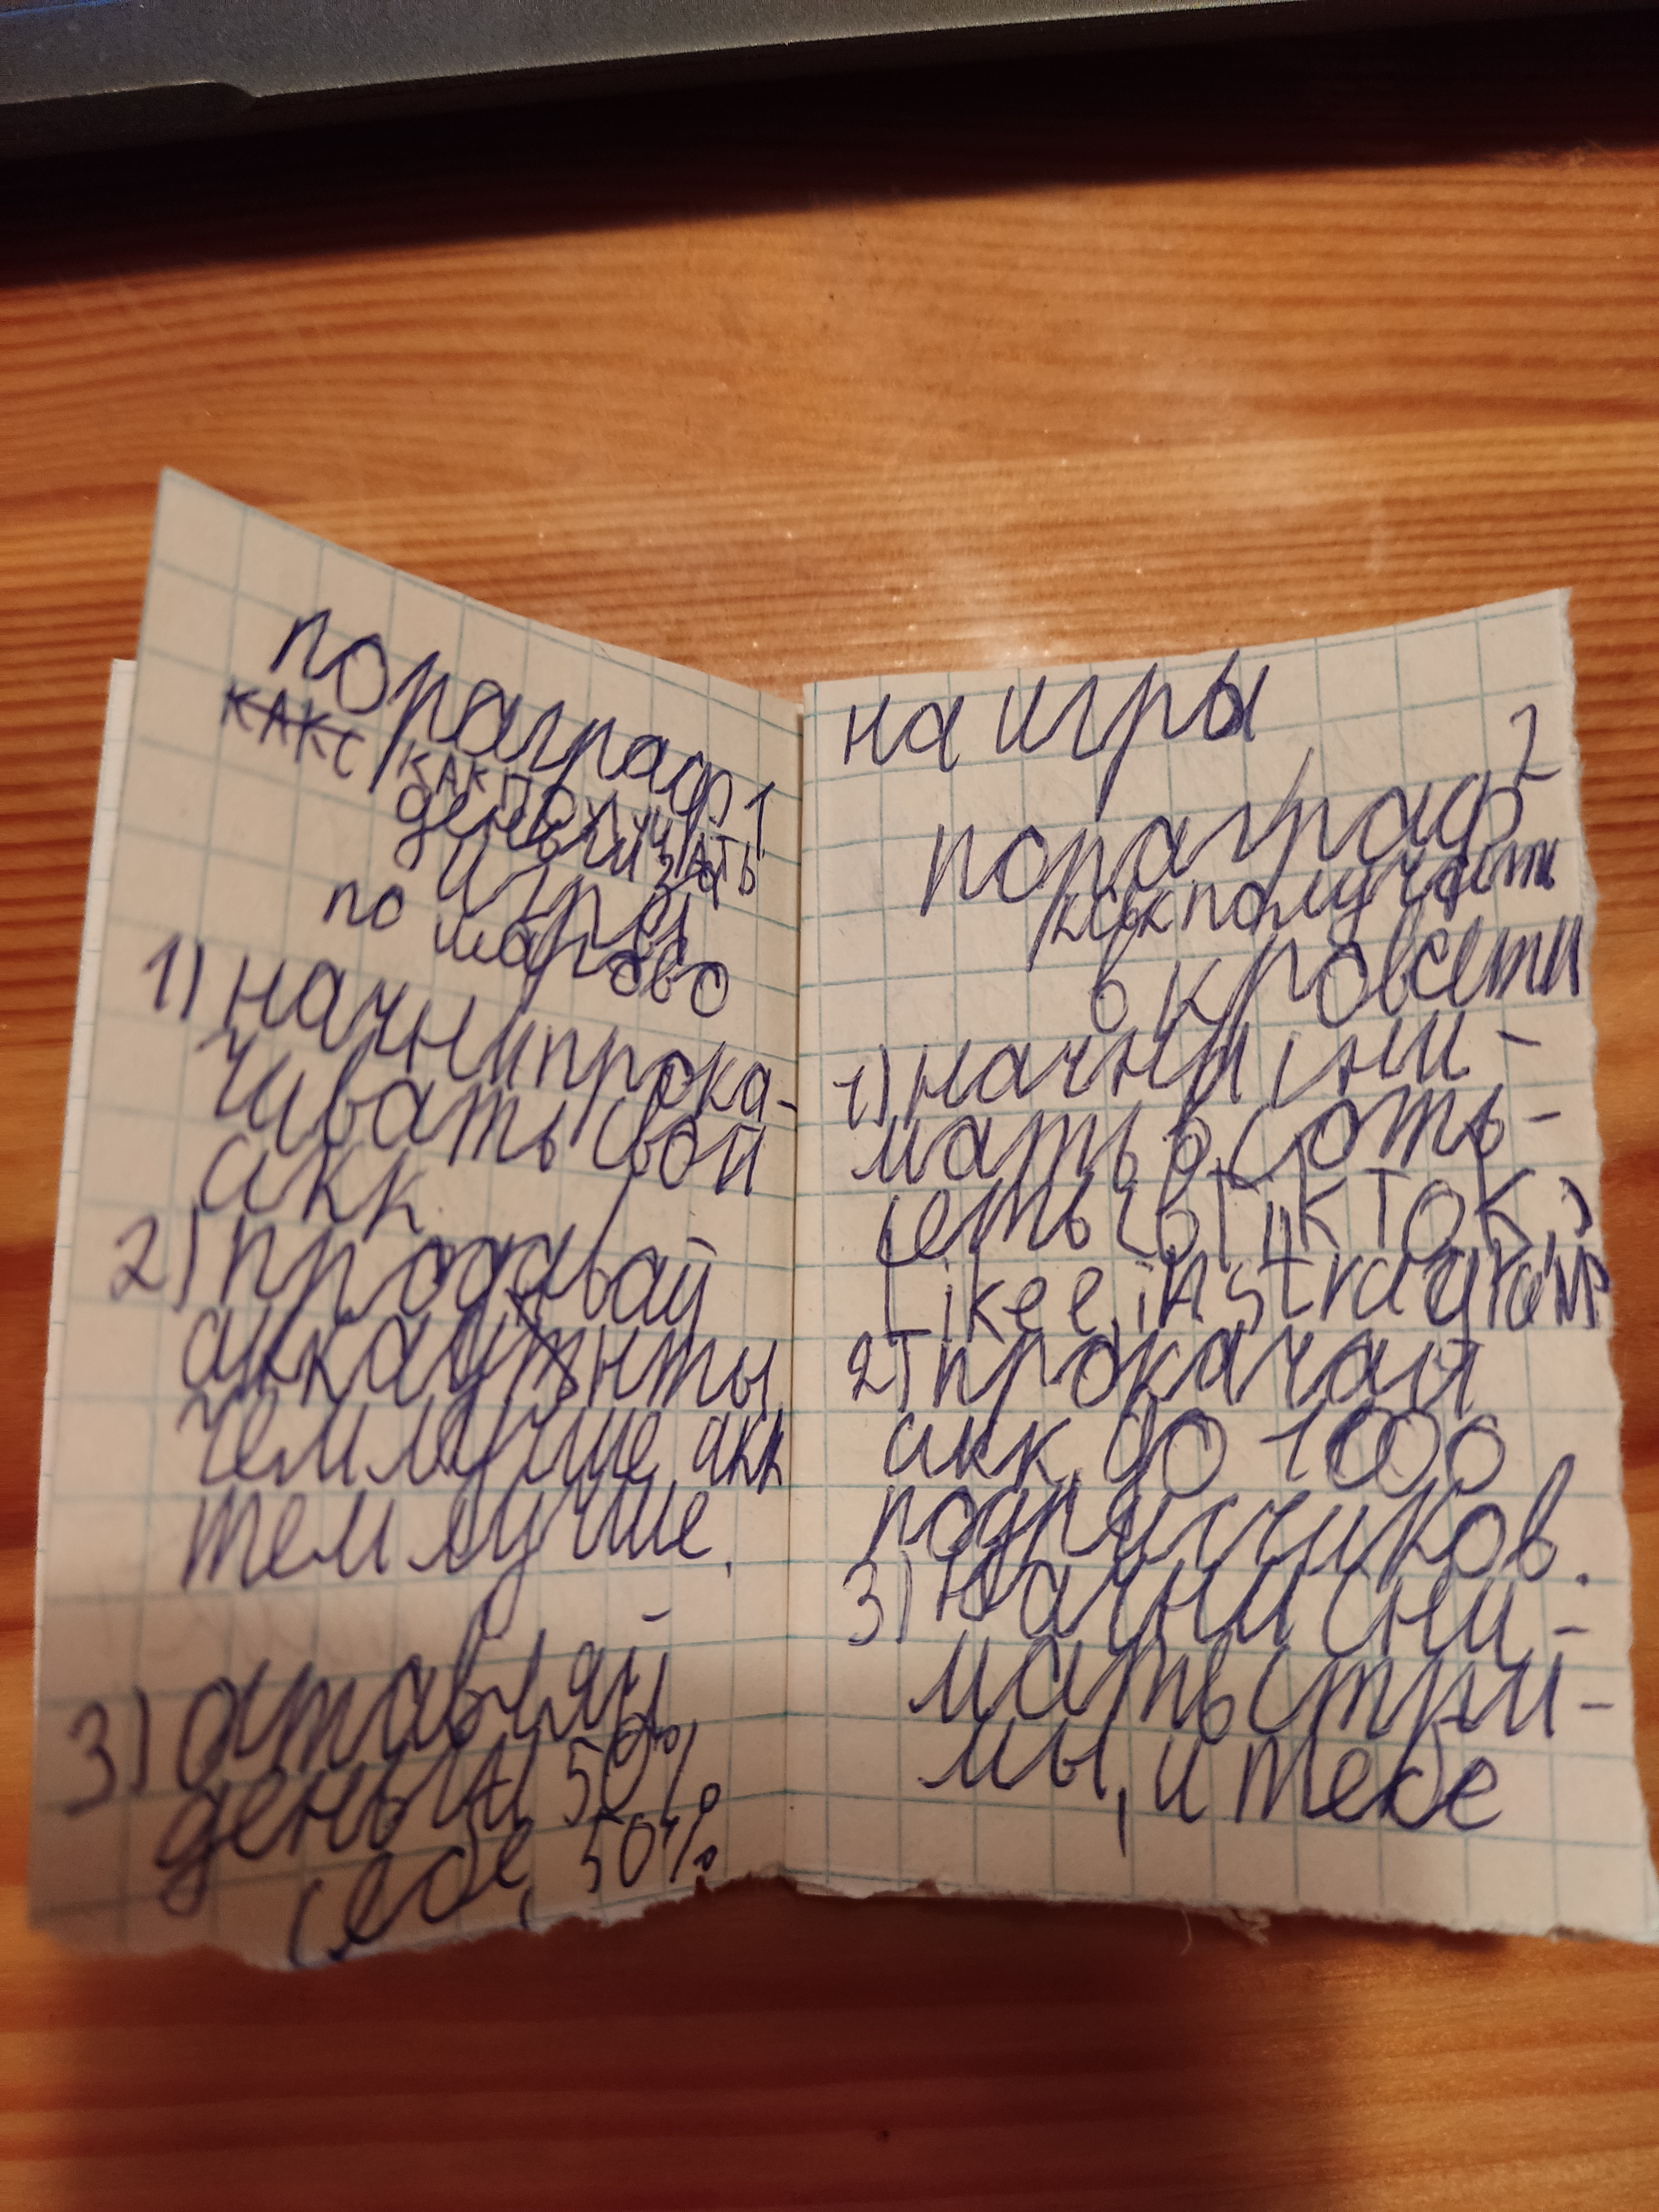 пораграф 1
как получать
деньги за
игры
по
1) начни прока-
чивать свой
акк
2) продавай
аккаунты,
чем лучше акк
тем лучше.
3) оставляй
деньги 50%
себе, 50%
на игры
пораграф 2
как получать
в
1) начни сни-
мать в соть-
сеть (в TikTOK,
Likee, instragram
2) прокачай
акк до 1000
подписчиков.
3) Начни сни-
мать стри-
мы, и тебе